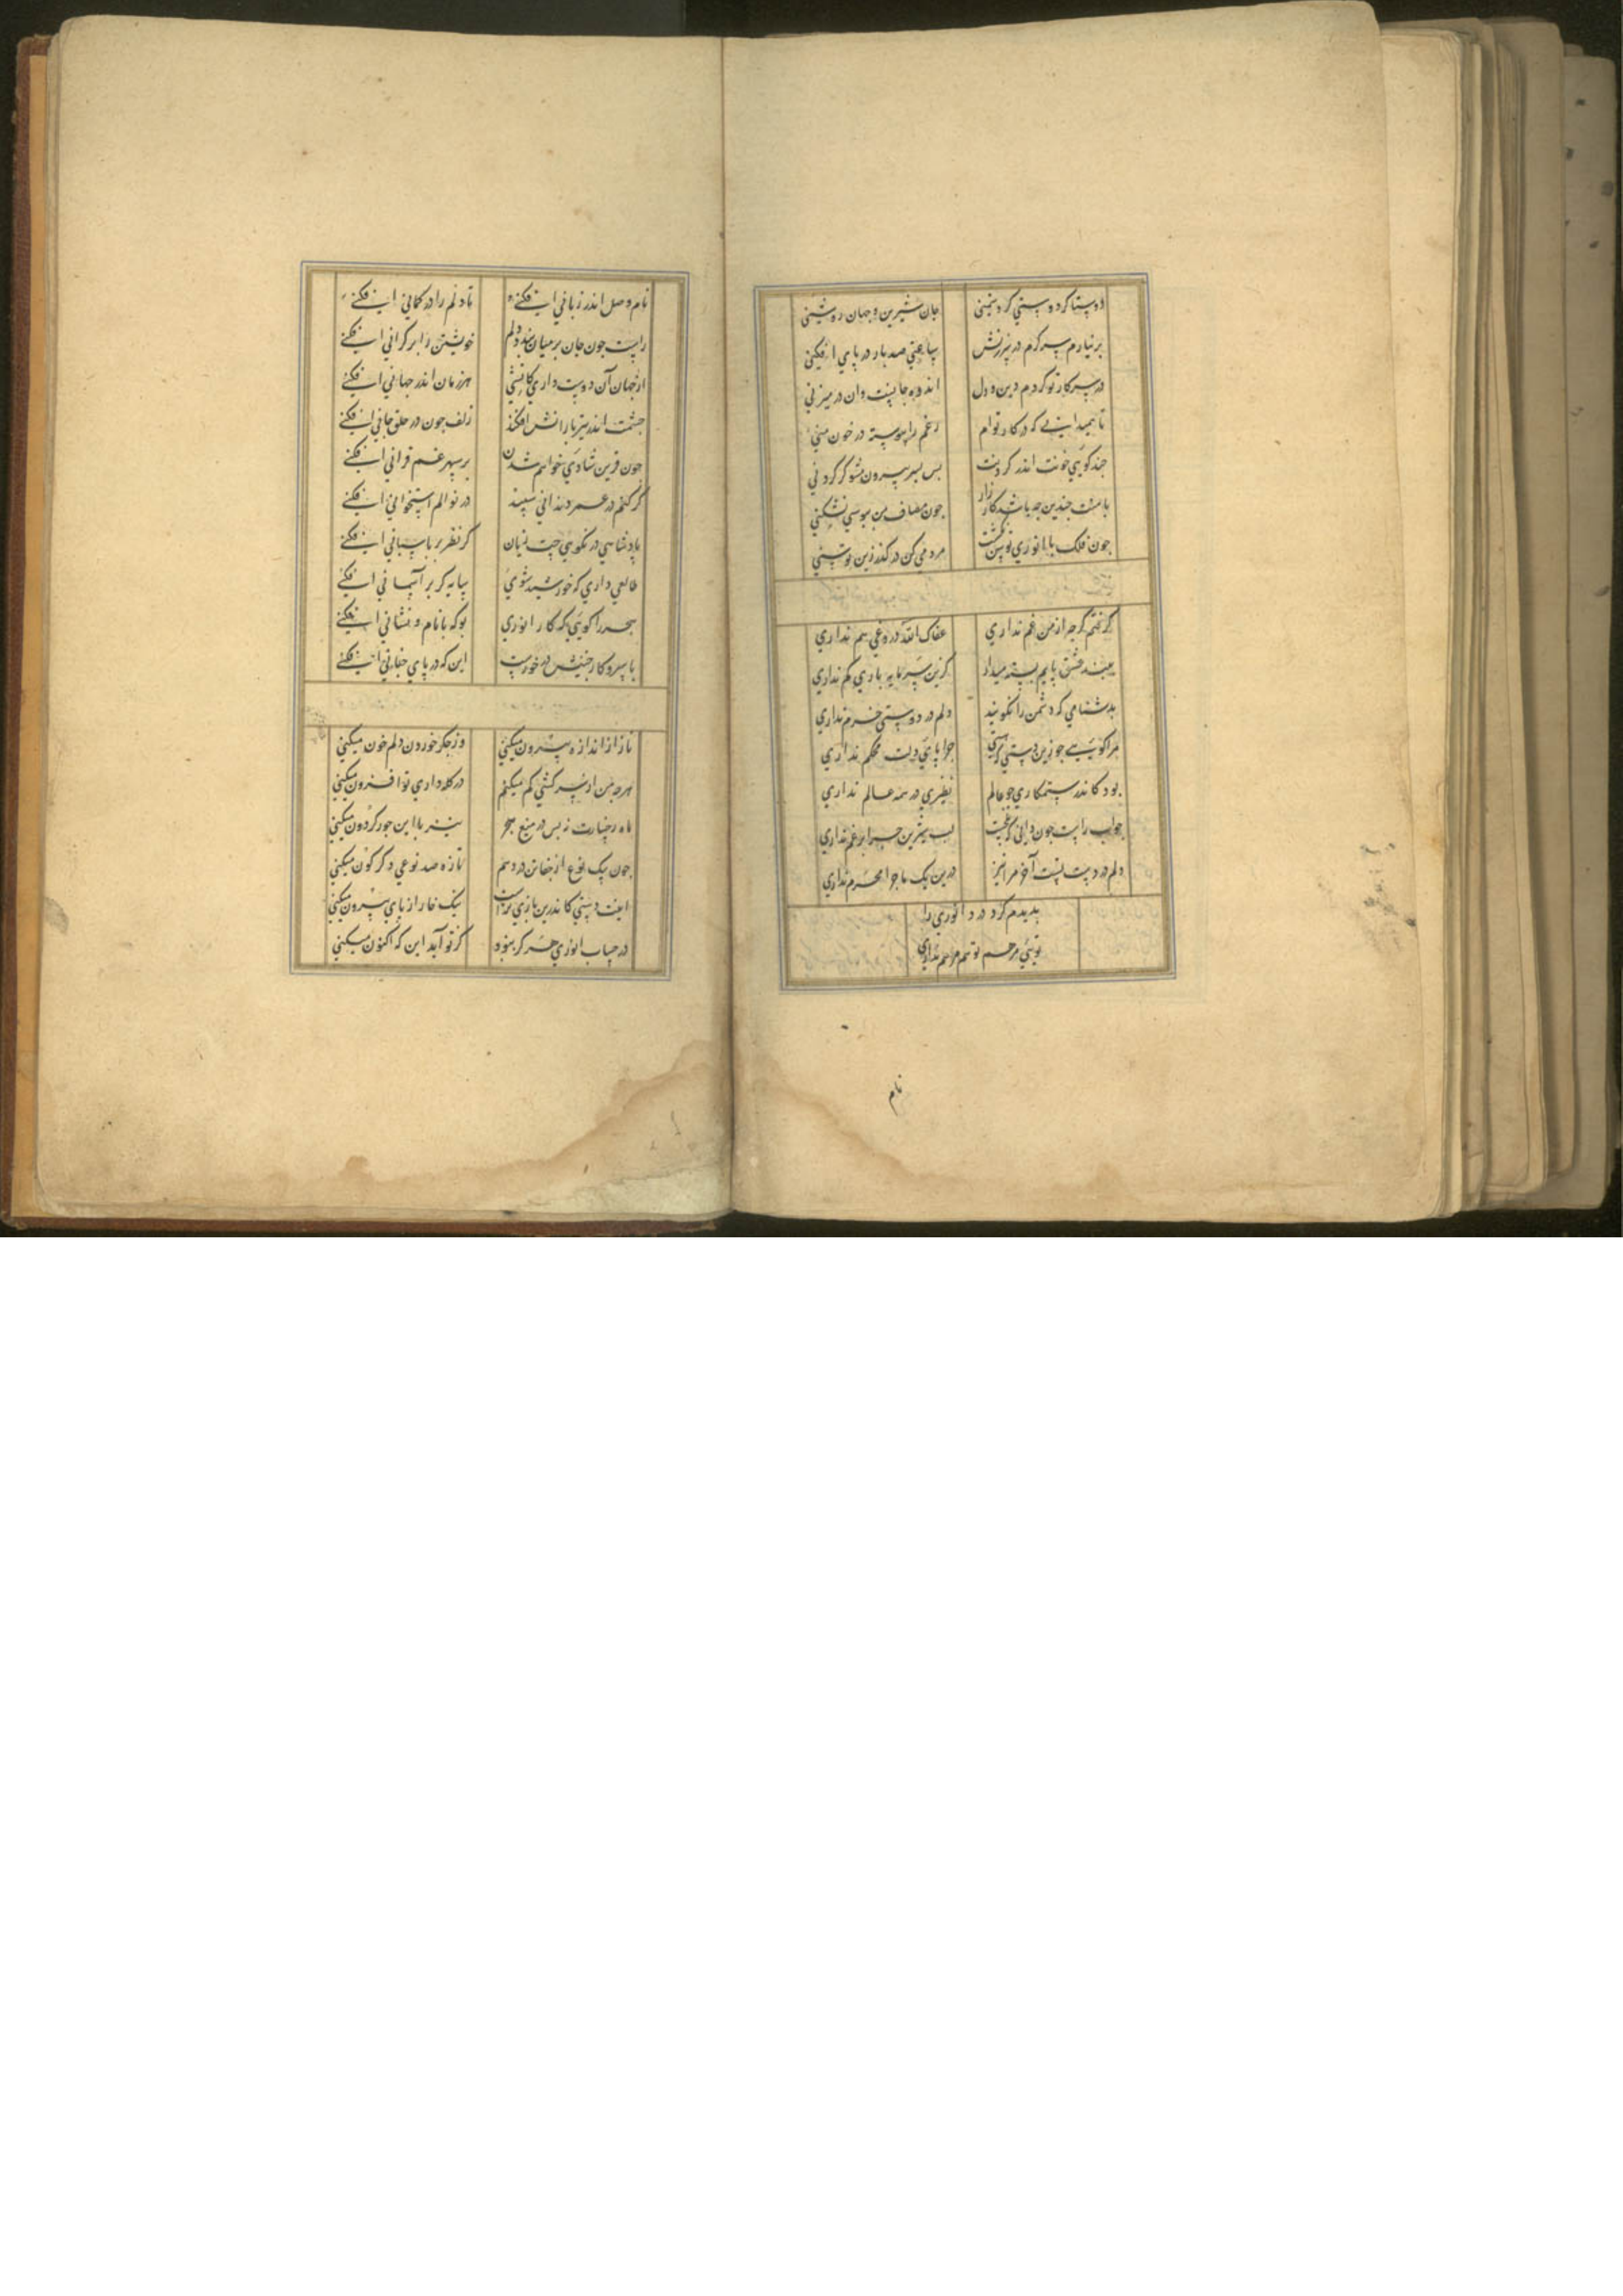 دوستا کر دوستی کر دشمنی جان شیرین و جهان روشنی
بر نیارم سر کرم در سرزنش ساعتی صد بار در پای افکنی
در سر کار تو کردم دین و دل اندوه جانست وان در میزنی
تا همی دانی که در کار توام رغم را پیوسته در خون منی
جند کویی خونت اندر کردنت بس بسر بیرون مشو کر کردنی
با منت جندین جه باشد کارزار جون مصاف من ببوسی بشکنی
جون فلک با انوری توسن کشت مردمی کن در کذر زین توسنی
کرفتم کر جه از من غم نداری عفاک الله دروغی هم نداری
ببند عشق پایم بسته میدار کزین سرمایه باری کم نداری
بدشنامی که دشمن را نکویند دلم در دوستی خرم نداری
مرا کویی جو زین دستی جرا پای دلت محکم نداری
بود کاندر ستمکاری جو عالم نظیری در همه عالم نداری
جواب راست جون دانی که تلخست لب شیرین جرا بر غم نداری
دلم در دست تست آخر مرا نیز درین یک ماجرا محرم نداری
بدیدم کرد درد انوری را
تویی مرهم تو هم مرهم نداری
نام
نام وصل اندر زبانی افکنی تا دلم را در کمانی افکنی
راست جون جان بر میان بندد دلم خویشتن را بر کرانی افکنی
از جهان آن دوست داری کاتشی هر زمان اندر جهانی افکنی
جشمت اندر تیر بارانش افکند زلف جون در حلق جانی افکنی
جون قرین شادی خواهم شدن بر سپهر غم قرانی افکنی
کر کنم در عمر دندانی سپید در نوالم استخوانی افکنی
پادشاهی در نکویی جیت زیان کر نظر بر پاسبانی افکنی
طالعی داری که خورشید شوی سایه کر بر آسمانی افکنی
هجر را کویی که کار انوری بو که با نام و نشانی افکنی
با سر و کار جنینش در خورست این که در پای جفانی افکنی
ناز از اندازه بیرون میکنی وز جکر خوردن دلم خون میکنی
هر جه من از سر کشی کم میکنم در کله داری تو افزون میکنی
ماه رخسارت ز بس در میغ هجر نیز با این جور کردون میکنی
جون بیک نوع از جفا تن در دهم تازه صد نوعی دکر کون میکنی
اینت دستی کاندرین بازی تراست نیک خار از پای بیرون میکنی
در حساب انوری هر کز نبود کز تو آید این که اکنون میکنی